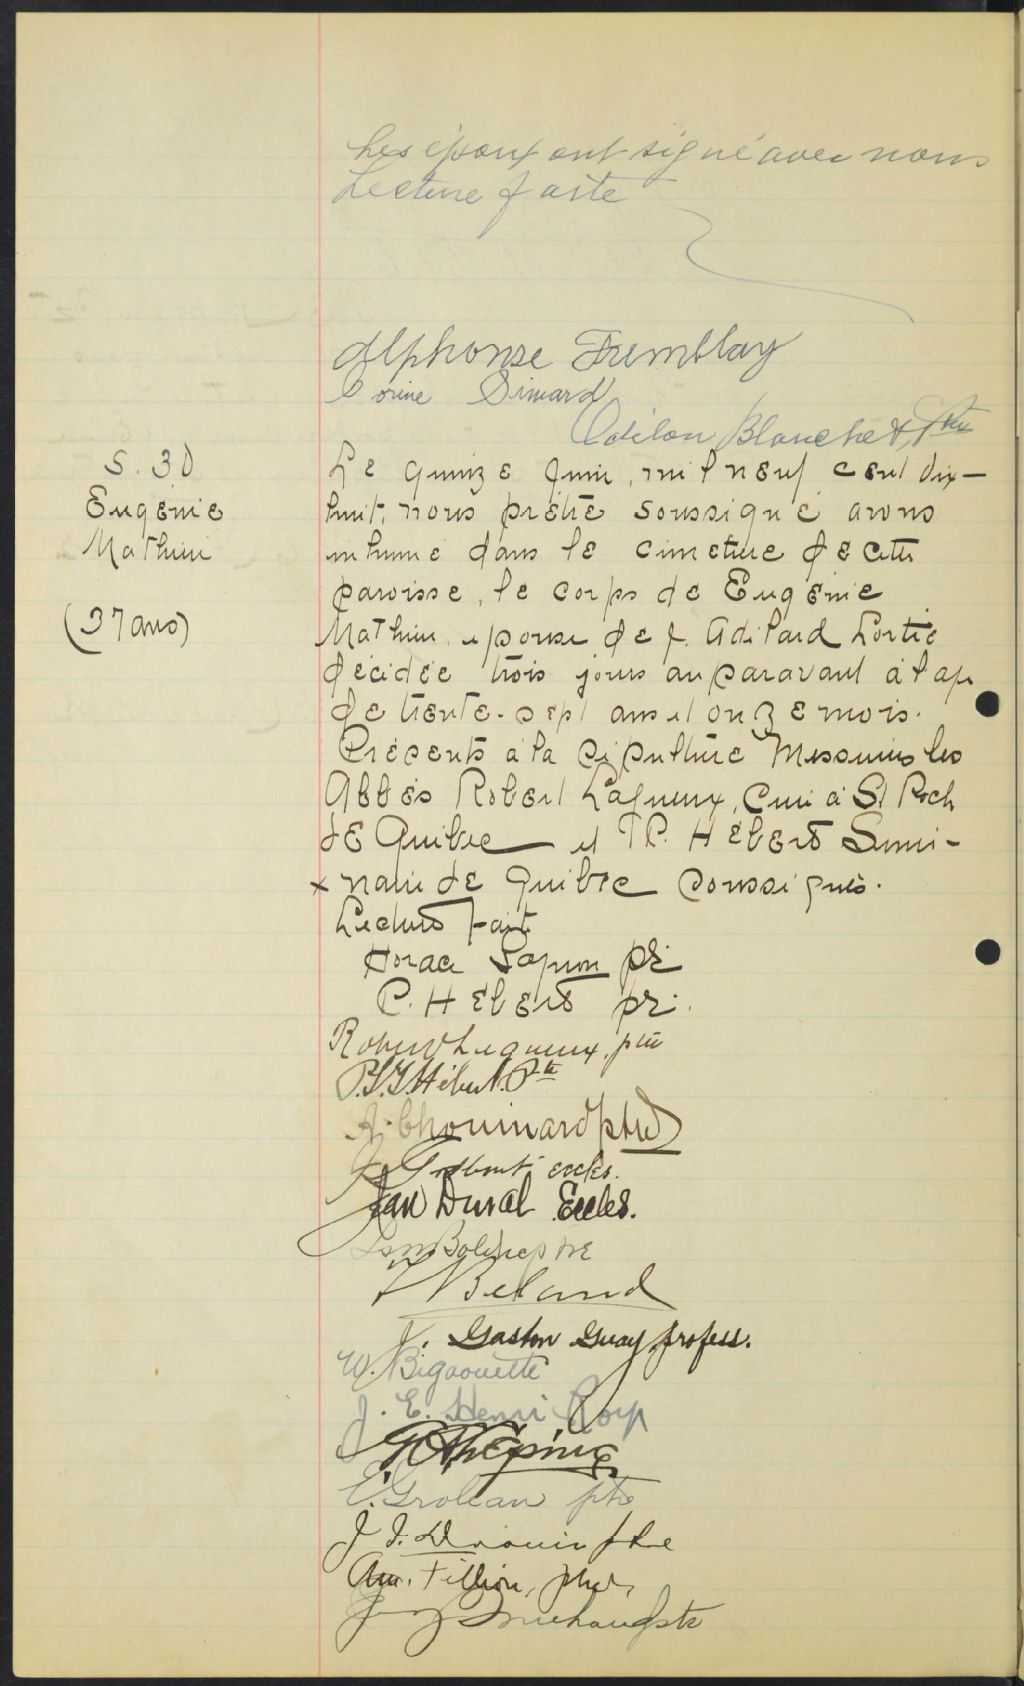 Les époux ont signé avec nous
Lecture faite
Alphonse Tremblay
Corine Simard
Odilon Blanchet, Ptre
S. 30
Eugénie
Mathieu
(37 ans)
Le quinze Juin, mil neuf cent dix-
huit, nous prêtre soussigné avons
inhumé dans le cimetière de cette
paroisse, le corps de Eugénie
Mathieu épouse de J. Adélard Lortie
décédée trois jours auparavant à l'age
de trente-sept ans et onze mois.
Présents à la sépulture Messieurs les
Abbés Robert Lagueux, Curé à St Roch
de Québec et P. Hébert Sémi-
x naire de Québec soussignés.
Lecture faite
Horace pr
P. Hébert pr.
Robert Lagueux, ptre
P.S.G. Hébert. Ptre
A. Chouinard ptre
Talbout eccles.
Jean Duval Eccles.
ptre
Beland
J. Gaston Guay, profess.
W. Bigaouette
J. E. Henri Roy
Lépine
E. Groleau ptre
J. J. Drouin ptre
Am. Fillion, ptre,
Michaud ptr